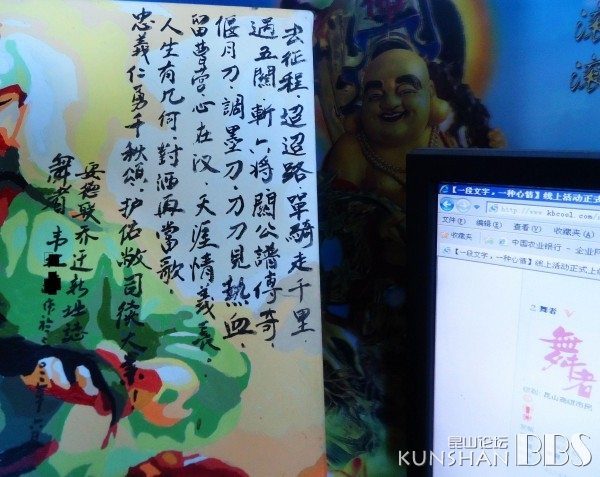 去征程.迢迢路.單騎走千里.
過五關.斬六將.關公譜傳奇.
偃月刀.調墨刀.刀刀見熱血.
留曹營.心在汉.天涯情義長.
人生有几何.對酒再當歌
忠義仁勇千秋頌.护佑敝司续大業!
乔迁新址誌
舞者 韦
作於
【一段文字，一种心情】线上活动正式
http://www.kbcool.com/
文件(F) 编辑(E) 查看(V) 收藏夹(A)
收藏夹 中国农业银行 - 企业
【一段文字，一种心情】线上活动正式上
舞者
舞者
昆山论坛
KUNSHAN BBS